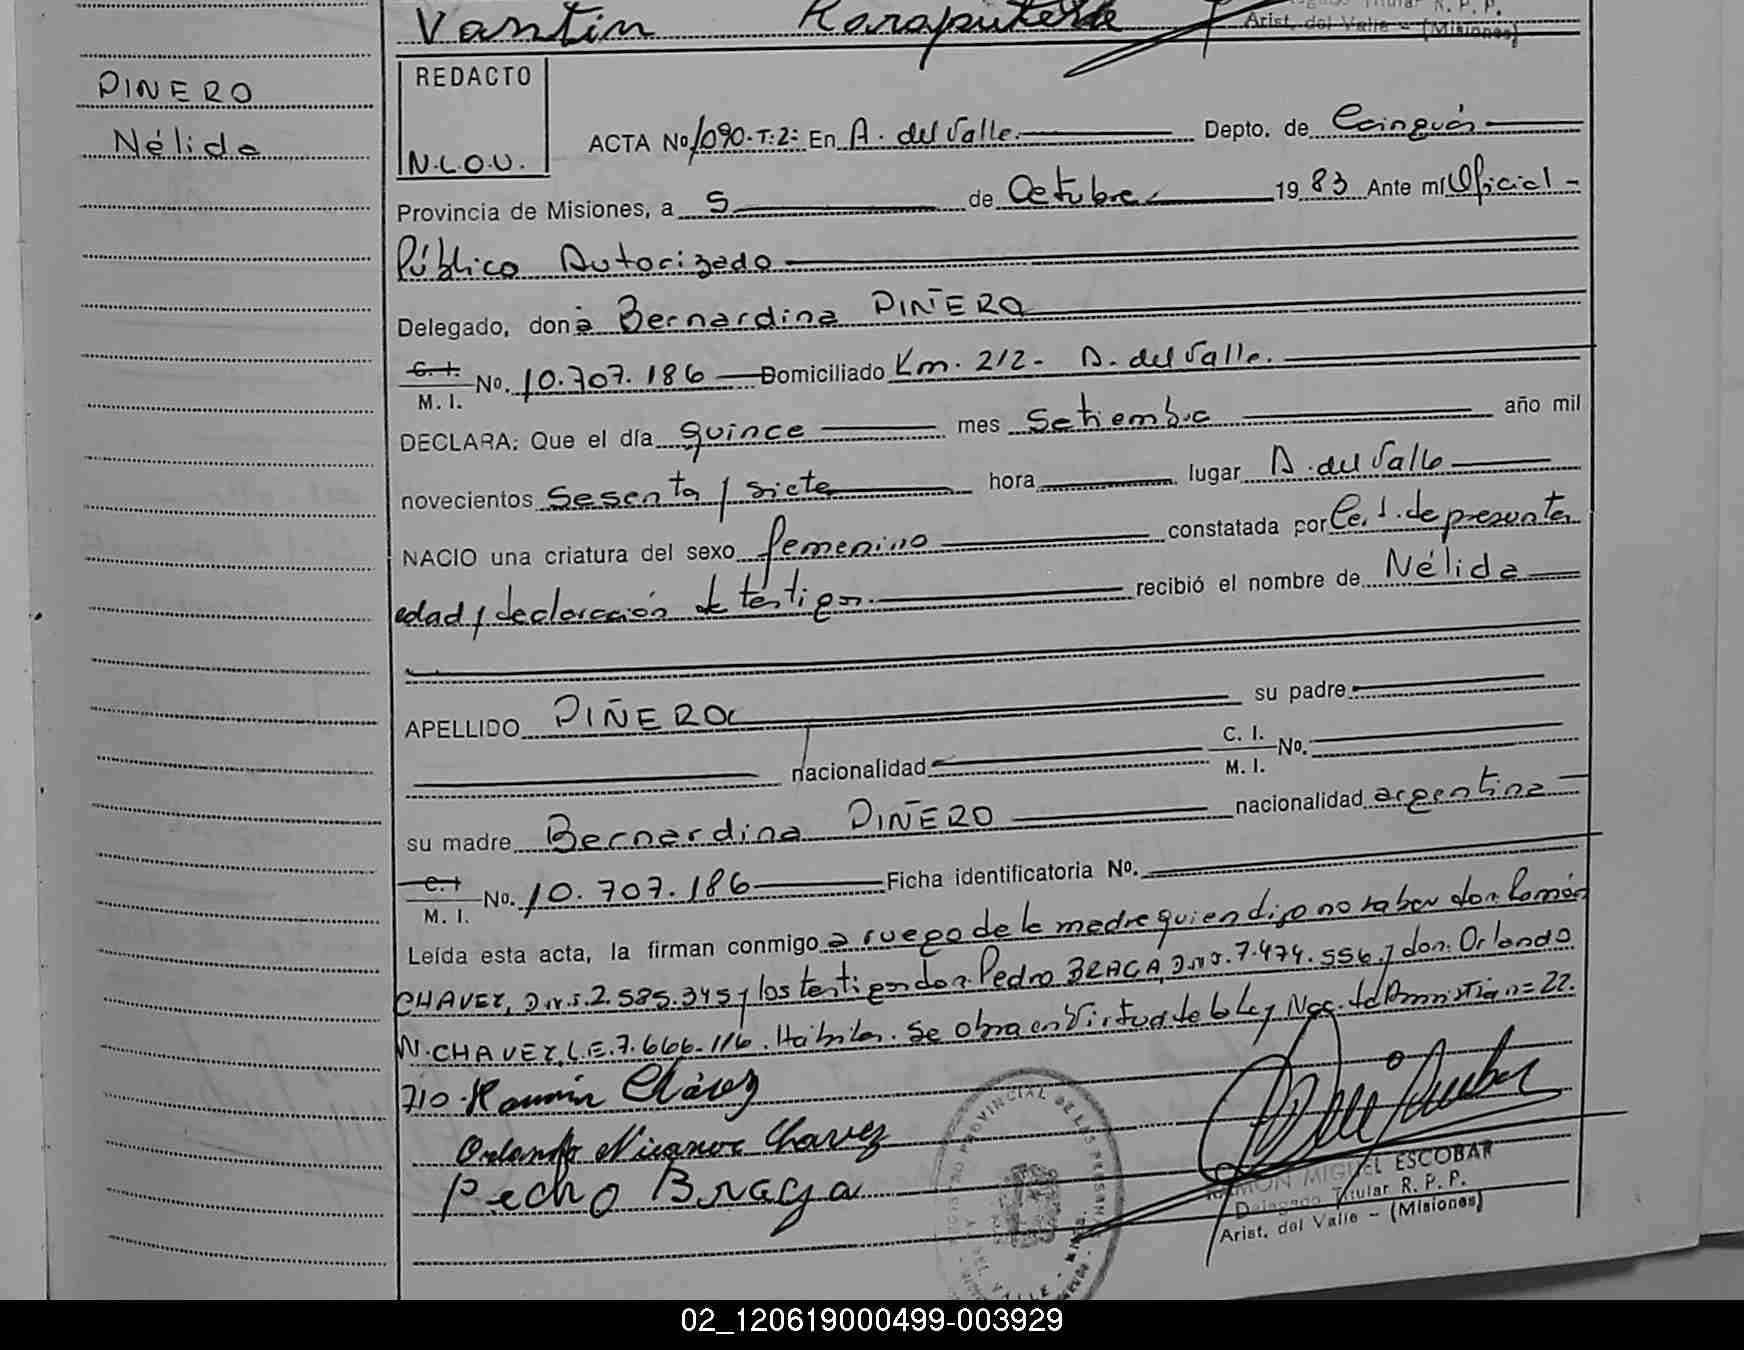 Vantin
Arist. del Valle - (Misiones)
PINERO
Nélida
REDACTO
N.L.O.U.
ACTA No 1090-T:2: En A. del Valle. Depto. de Cainguás
Provincia de Misiones, a 5 de Octubre 1983 Ante mí Oficial -
Público Autorizado
Delegado, don a Bernardina PIÑERO
C. I.
M. I. No. 10.707.186 Domiciliado Km. 212- A. del Valle.
DECLARA: Que el día quince mes Setiembre año mil
novecientos sesenta y siete hora lugar A. del Valle
NACIO una criatura del sexo femenino constatada por Ce. 1. de presunta
edad y declaración de testigos. recibió el nombre de Nélida
APELLIDO PIÑERO su padre
nacionalidad C. I.
M. I. No.
su madre Bernardina PIÑERO nacionalidad argentina
C. I
M. I. No. 10.707.186 Ficha identificatoria No.
Leída esta acta, la firman conmigo a ruego de la madre quien dijo no saber don Ramón
CHAVEZ, D.N.I. 2.585.345 y los testigos don Pedro BRAGA, D.N.I. 7.474.556 y don Orlando
N. CHAVEZ, L.E. 7.666.116. Hábiles. Se obra en Virtud de la Ley Nac. de Amnistía n= 22.
710. Ramón Chávez
Orlando Nicanor Chavez
Pedro Braga
REGISTRO PROVINCIAL DE LAS PERSONAS
RAMON MIGUEL ESCOBAR
Delegado Titular R. P. P.
Arist. del Valle - (Misiones)
02_120619000499-003929